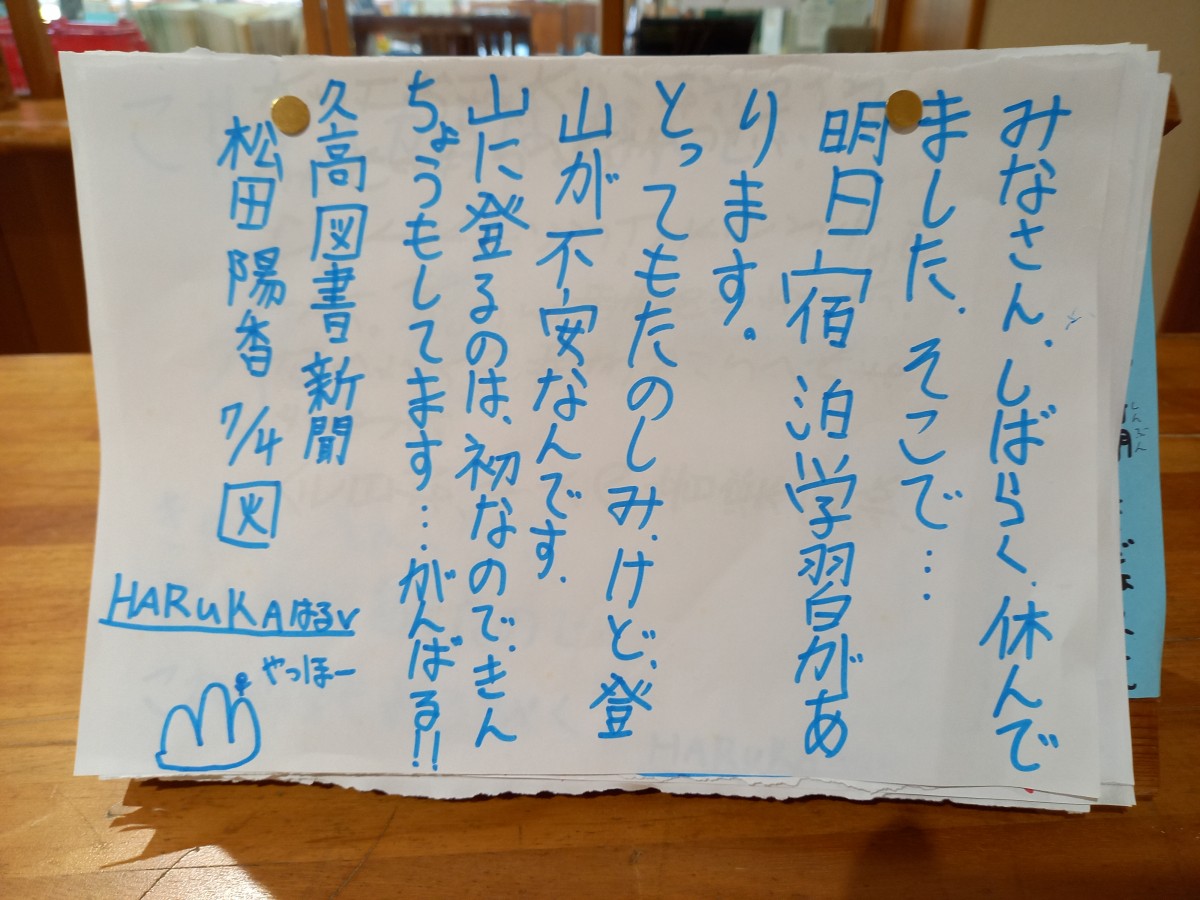 みなさん、しばらく、休んで
ました、そこで…
明日宿泊学習があ
ります。
とってもたのしみ、けど、登
山が不安なんです、
山に登るのは、初なので、きん
ちょうもしてます…がんばる!!
久高図書新聞
松田陽香 7/4図
HARUKAはるv
やっほー
しんぶん